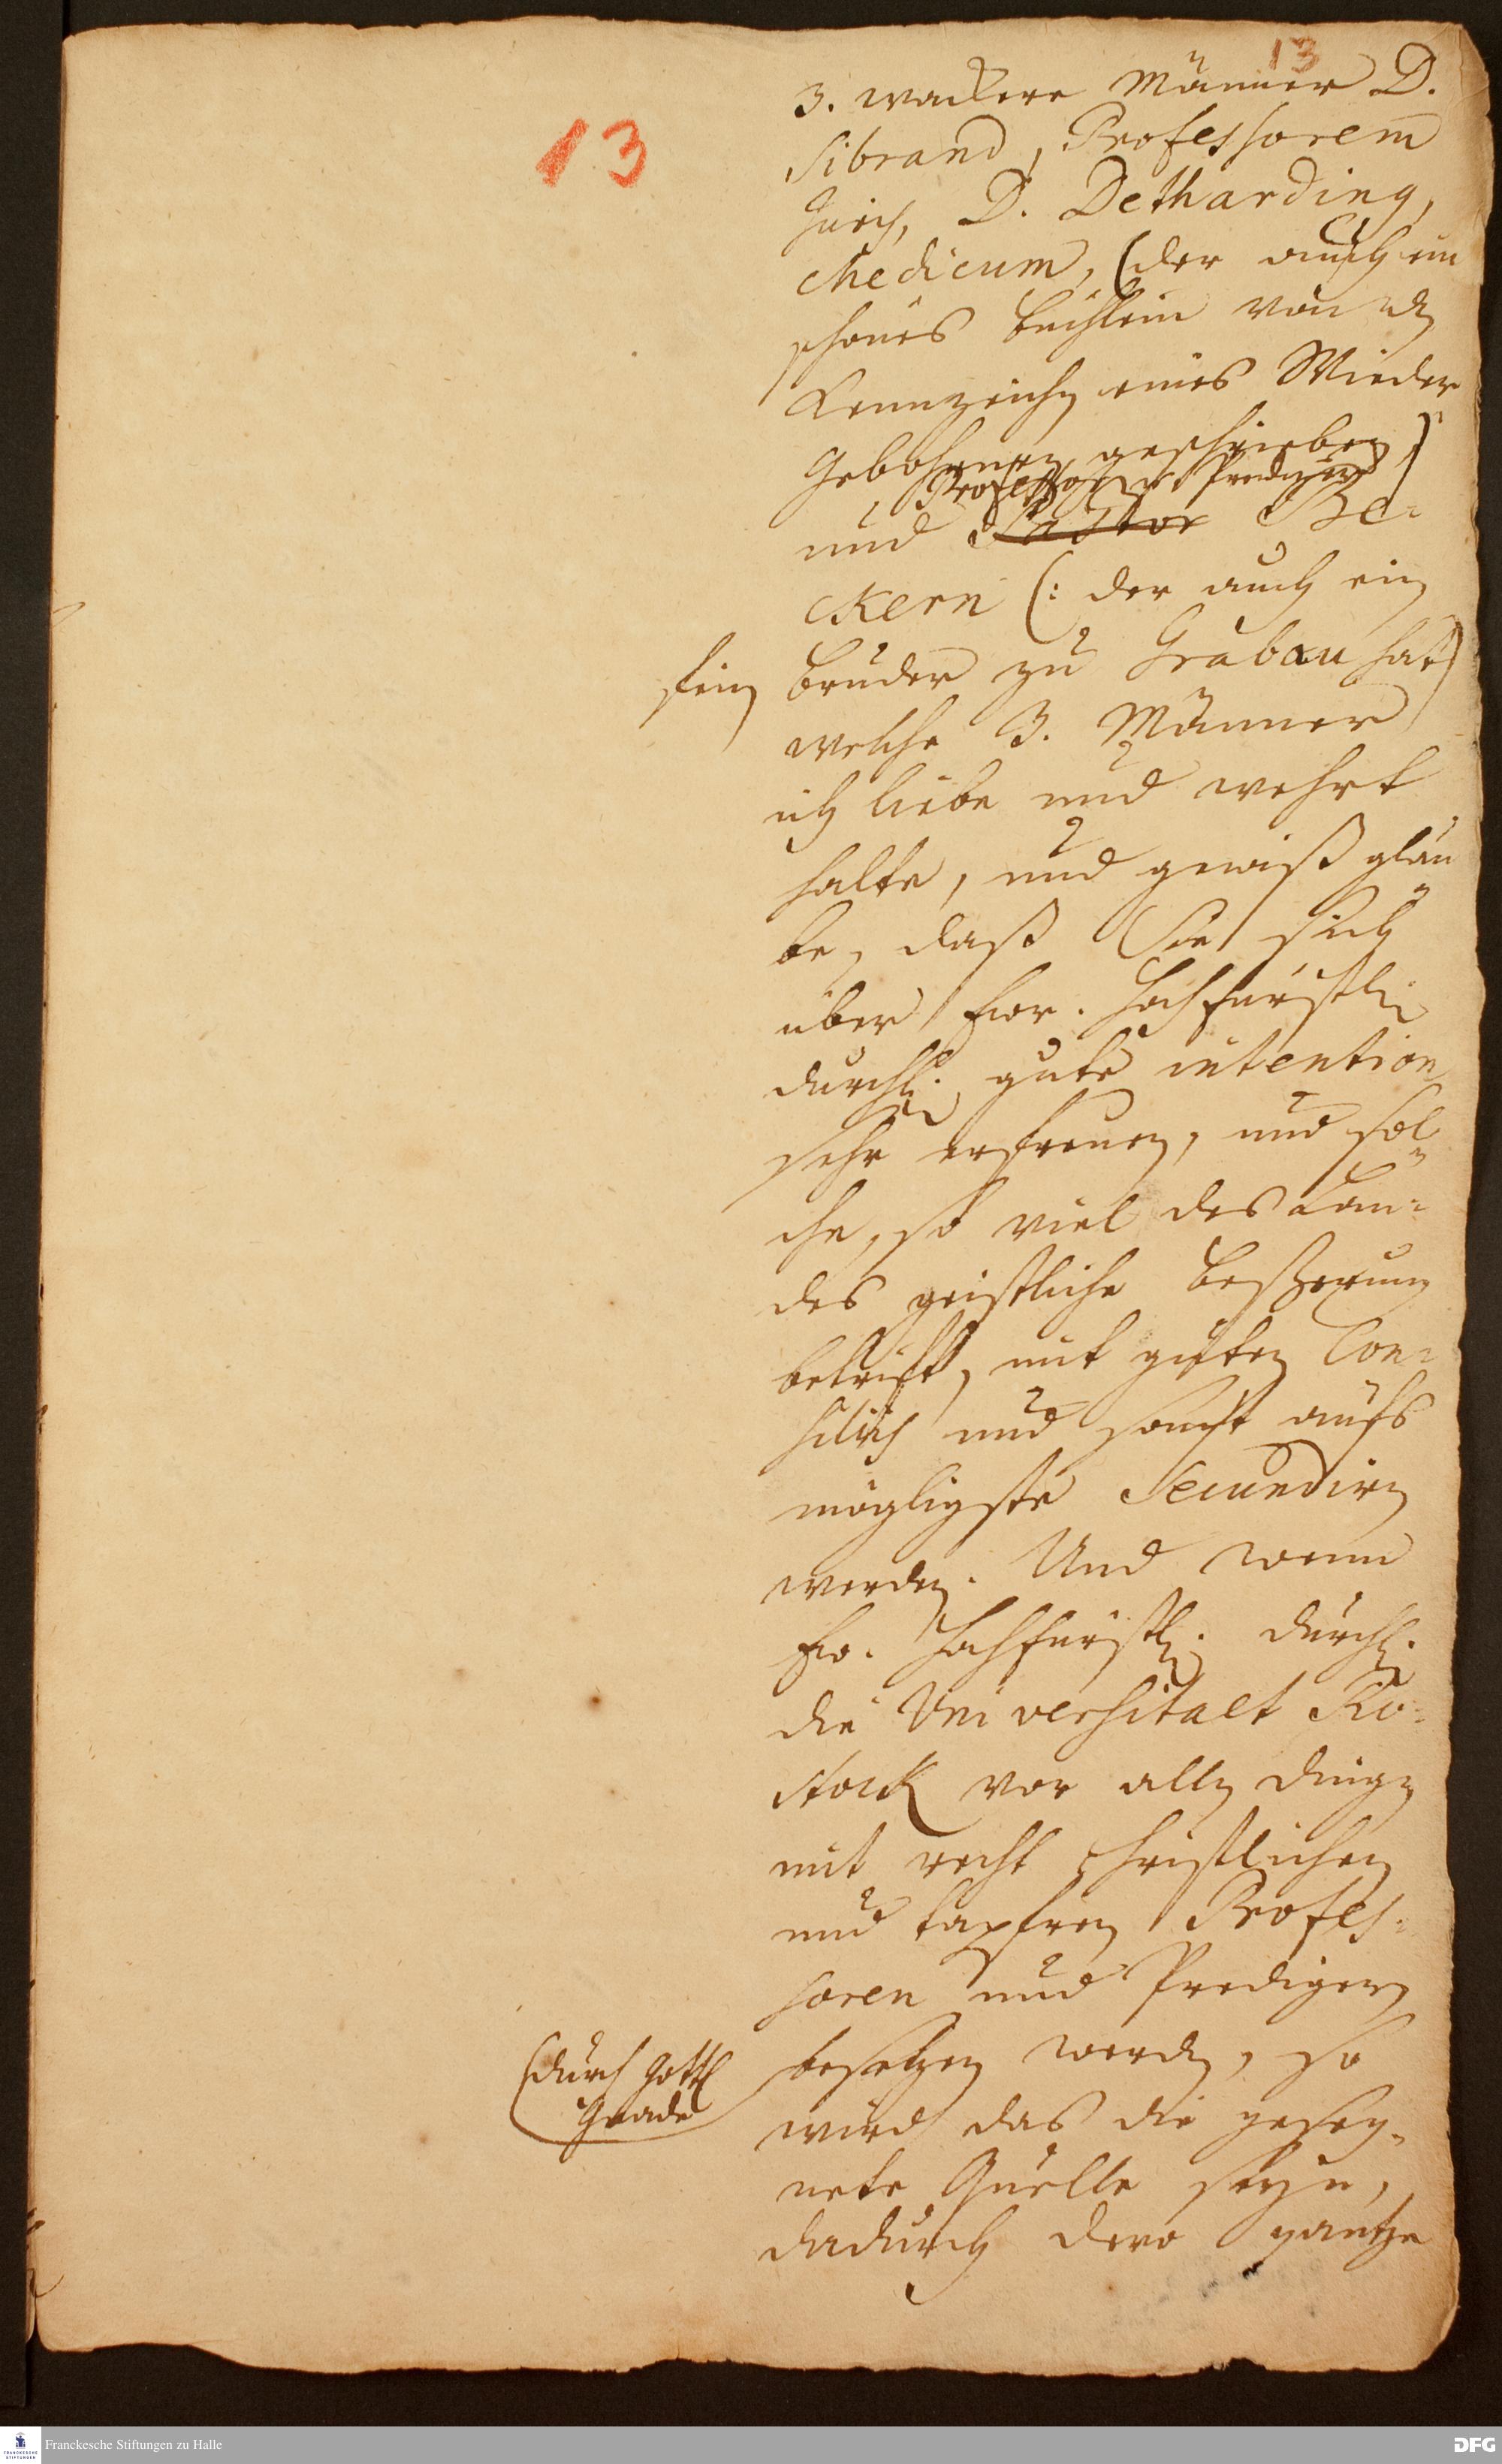 13
13
3. wackere Männer D.
Sibrand, Professorem
Juris, D. Detharding,
Medicum, (der auch ein
schönes büchlein von den
Kennzeichen eines Wieder
Gebohrnen geschrieben)
Professor Prediger
und Pastor Be-
ckern (: der auch ein
fein bruder zu Grabau hat)
welche 3. Männer
ich liebe und wehrt
halte, und gewiß gläu
be, daß Sie sich
über Ewr. Hochfürstl.
durchl. gute intention
sehr erfreuen, und sol
che, so viel des Lan-
des geistliche beßerung
betrifft, mit guten Con-
siliis und sonst aufs
möglichste secundiren
werden. Und wenn
Ew. Hochfürstl. Durchl.
die Universitaet Ro-
stock vor allen dingen
mit recht christlichen
und tapfren Profes-
soren und Predigern
besetzen werden, so
(durch Gottes
Gnade
wird das die geseg-
nete Quelle seyn,
dadurch dero gantze
Franckesche Stiftungen zu Halle
DFG